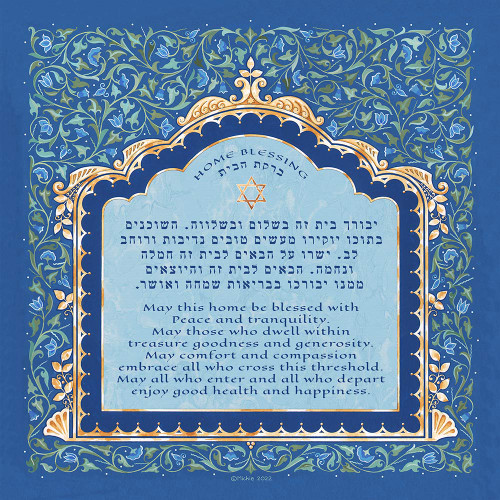 HOME BLESSING
ברכת הבית
יבורך בית זה בשלום ובשלווה. השוכנים
בתוכו יוקירו מעשים טובים נדיבות ורוחב
לב. ישרו על הבאים לבית זה חמלה
ונחמה. הבאים לבית זה והיוצאים
ממנו יבורכו בבריאות שמחה ואושר.
May this home be blessed with
Peace and tranquility.
May those who dwell within
treasure goodness and generosity.
May comfort and compassion
embrace all who cross this threshold.
May all who enter and all who depart
enjoy good health and happiness.
©Mickie 2022